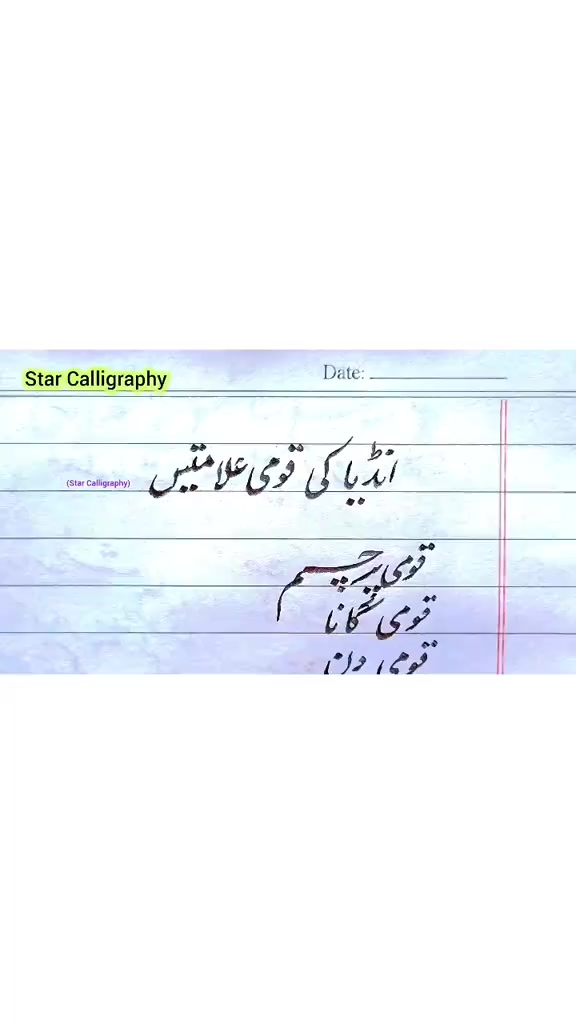 Star Calligraphy
Date:
انڈیا کی قومی علامتیں
(Star Calligraphy)
قومی پرچم
قومی گانا
قومی دن